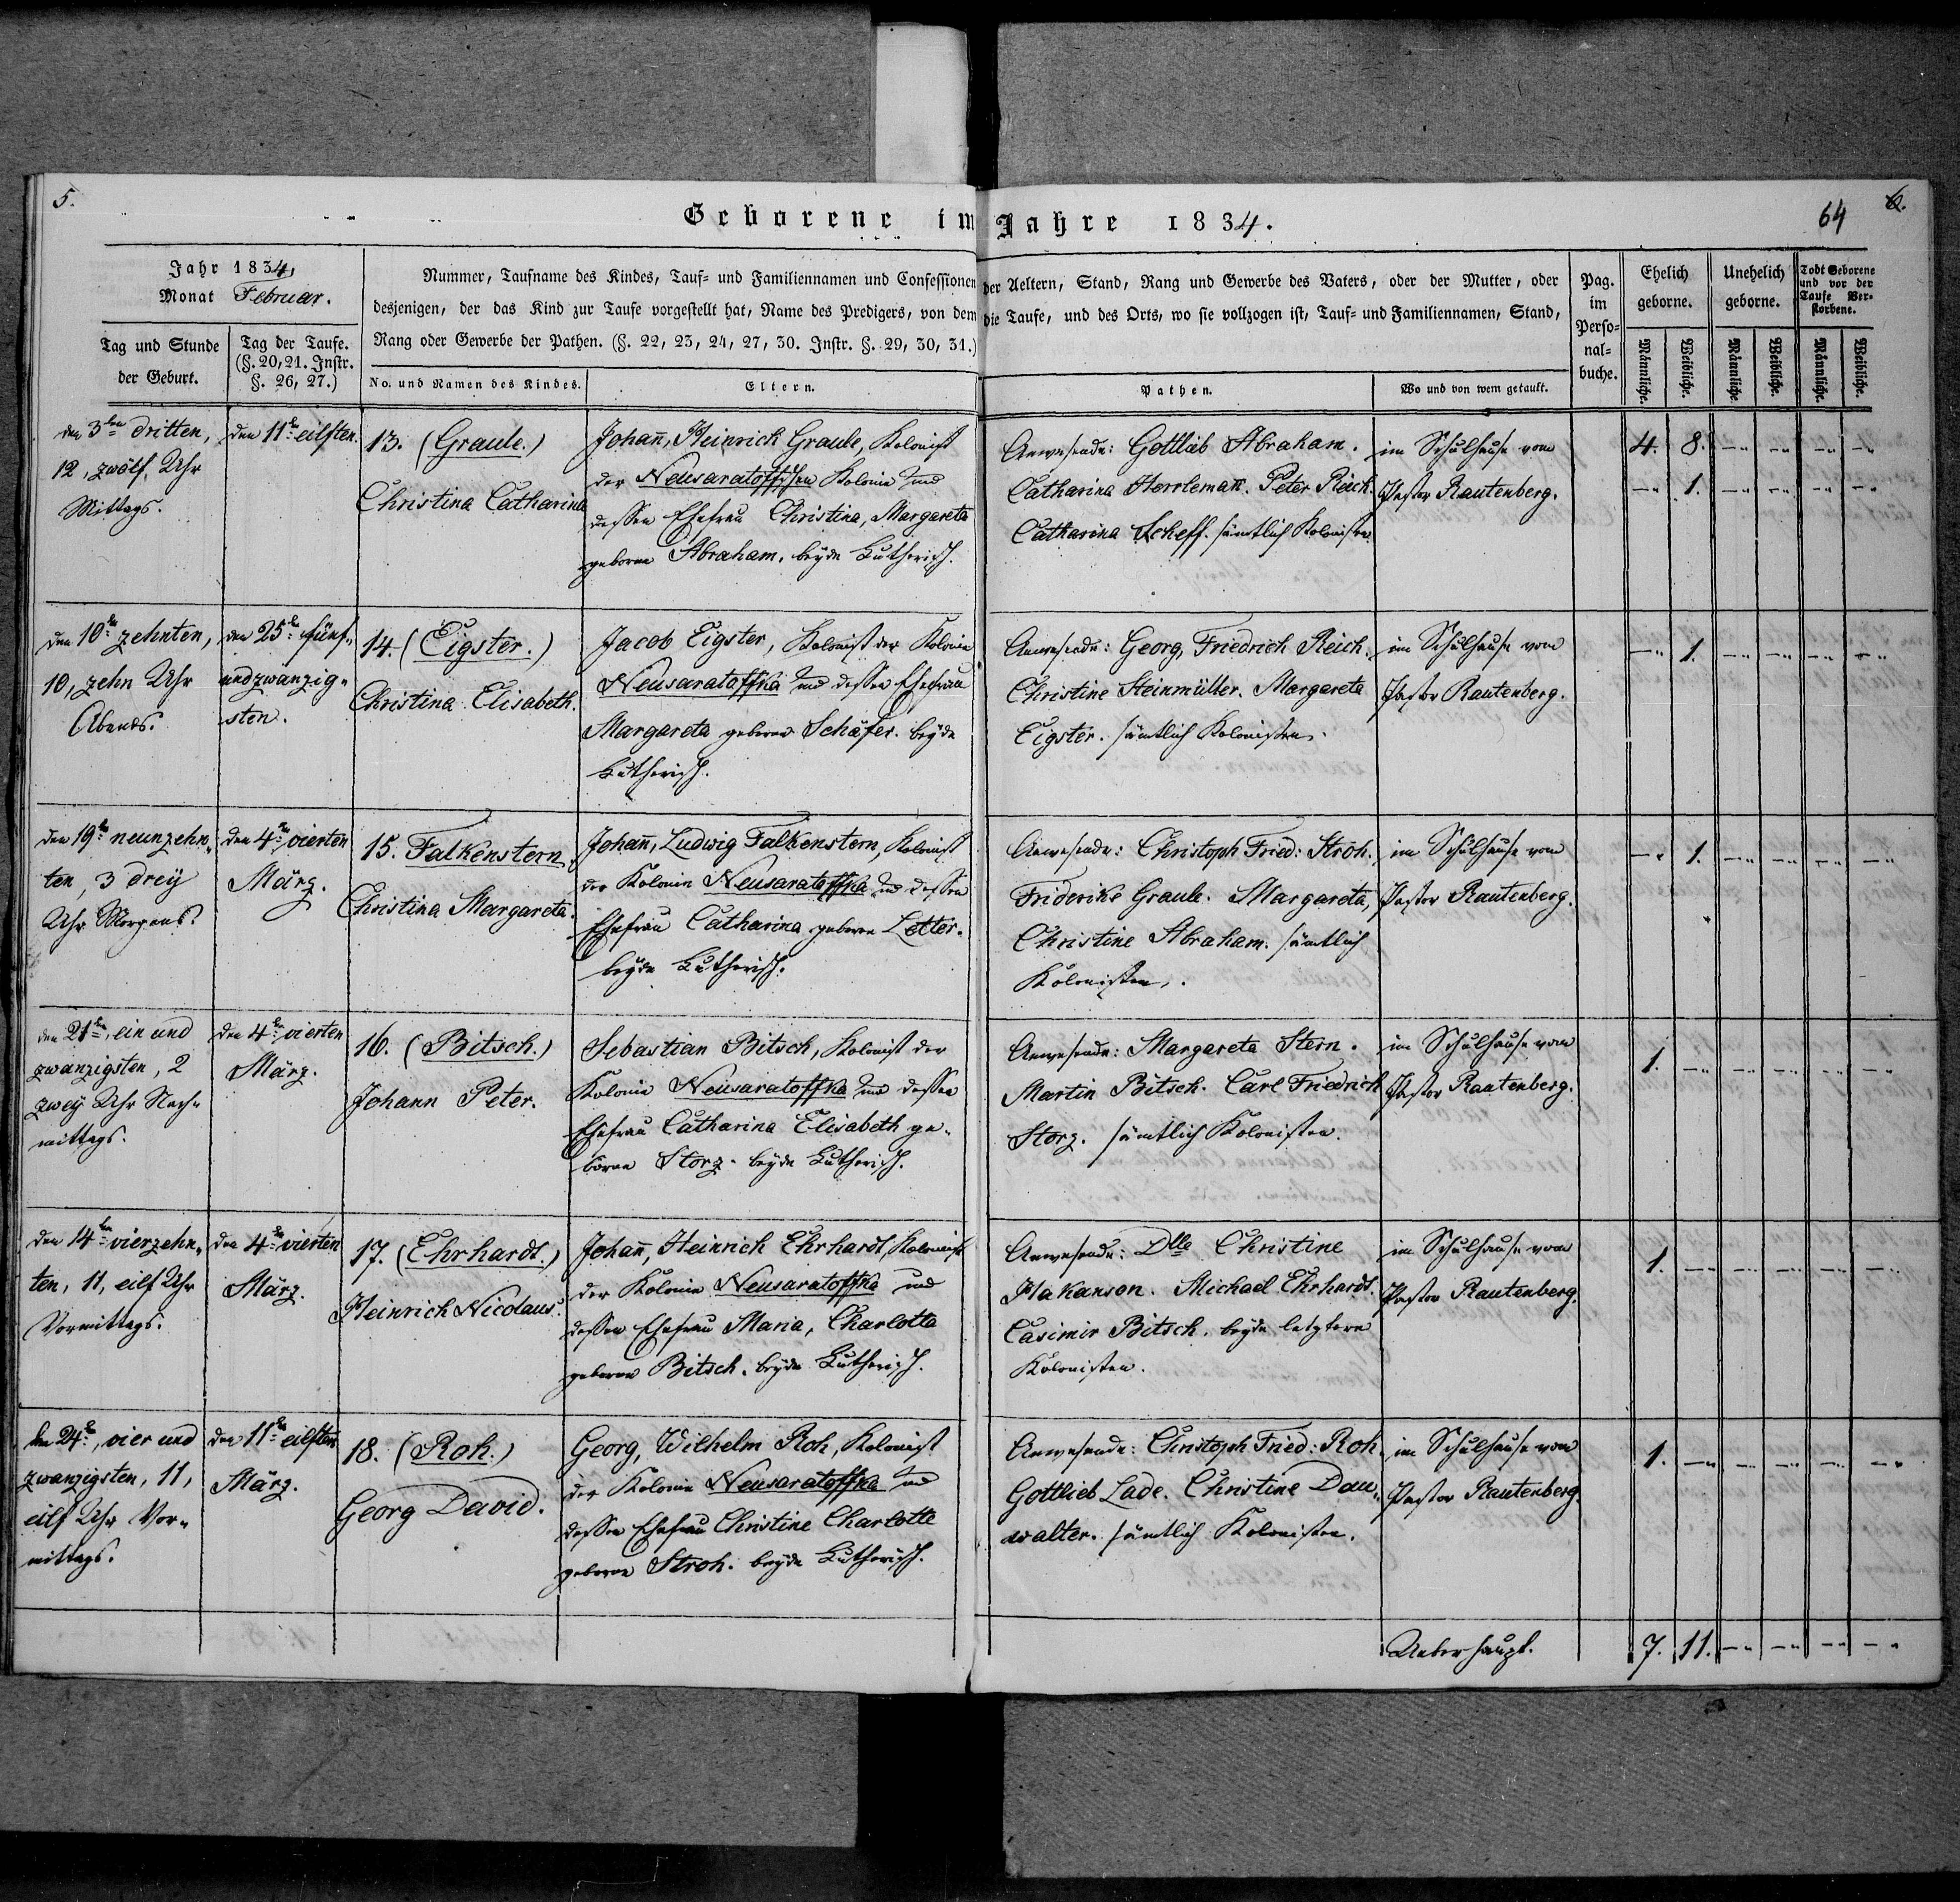 5.
Geborene im Jahre 1834.
64
6.
Jahr 1834,
Monat Februar.
Tag und Stunde
der Geburt.
Tag der Taufe.
(§. 20, 21. Instr.
§. 26, 27.)
Nummer, Taufname des Kindes, Tauf- und Familiennamen und Confessionen der Aeltern, Stand, Rang und Gewerbe des Vaters, oder der Mutter, oder
desjenigen, der das Kind zur Taufe vorgestellt hat, Name des Predigers, von dem die Taufe, und des Orts, wo sie vollzogen ist, Tauf- und Familiennamen, Stand,
Rang oder Gewerbe der Pathen. (§. 22, 23, 24, 27, 30. Instr. §. 29, 30, 31.)
No. und Namen des Kindes.
Eltern.
Pathen.
Wo und von wem getauft.
Pag.
im
Perso-
nal-
buche.
Ehelich
geborne.
Unehelich
geborne.
Todt Geborene
und vor der
Taufe Ver-
storbene.
Männliche.
Weibliche.
Männliche.
Weibliche.
Männliche.
Weibliche.
den 3ten dritten,
12, zwölf, Uhr
Mittags.
den 11ten eilften.
13. (Graule.)
Christina Catharina
Johañ, Heinrich Graule, Kolonist
der Neusaratoffschen Kolonie und
dessen Ehefrau Christina, Margareta
geborne Abraham. beyde Lutherisch.
Anwesende: Gottlieb Abraham.
Catharina Herrlemañ. Peter Reich.
Catharina Scheff. sämtlich Kolonisten.
im Schulhause vom
Pastor Rautenberg.
4. 8. -" -" -" -"
-" 1. -" -" -" -"
den 10ten zehnten,
10, zehn Uhr
Abends.
den 25ten fünf"
undzwanzig"
sten.
14. (Eigster.)
Christina Elisabeth.
Jacob Eigster, Kolonist der Kolonie
Neusaratoffka und dessen Ehefrau
Margareta geborne Schäfer. beyde
Lutherisch.
Anwesende: Georg, Friedrich Reich.
Christine Steinmüller. Margareta
Eigster. sämtlich Kolonisten.
im Schulhause vom
Pastor Rautenberg.
-" 1. -" -" -" -"
den 19ten neunzehn"
ten, 3 drey
Uhr Morgens.
den 4ten vierten
März.
15. Falkenstern
Christina Margareta.
Johañ, Ludwig Falkenstern, Kolonist
der Kolonie Neusaratoffka und dessen
Ehefrau Catharina geborne Letter.
beyde Lutherisch.
Anwesende: Christoph Fried: Stroh.
Friderike Graule. Margareta,
Christine Abraham. sämtlich
Kolonisten.
im Schulhause vom
Pastor Rautenberg.
-" 1. -" -" -" -"
den 21ten, ein und
zwanzigsten, 2
zwey Uhr Nach"
mittags.
den 4ten vierten
März.
16. (Bitsch.)
Johann Peter.
Sebastian Bitsch, Kolonist der
Kolonie Neusaratoffka und dessen
Ehefrau Catharina Elisabeth ge"
borne Storz. beyde Lutherisch.
Anwesende: Margareta Stern.
Martin Bitsch. Carl Friedrich
Storz. sämtlich Kolonisten.
im Schulhause vom
Pastor Rautenberg.
1. -" -" -" -" -"
den 14ten vierzehn"
ten, 11, eilf Uhr
Vormittags.
den 4ten vierten
März.
17. (Ehrhardt.)
Heinrich Nicolaus.
Johañ, Heinrich Ehrhardt, Kolonist
der Kolonie Neusaratoffka und
dessen Ehefrau Maria, Charlotta
geborne Bitsch. beyde Lutherisch.
Anwesende: Dlle Christine
Hakanson. Michael Ehrhardt.
Casimir Bitsch. beyde letztere
Kolonisten.
im Schulhause vom
Pastor Rautenberg.
1. -" -" -" -" -"
den 24ten, vier und
zwanzigsten, 11,
eilf Uhr Vor"
mittags.
den 11ten eilften
März.
18. (Roh.)
Georg David.
Georg, Wilhelm Roh, Kolonist
der Kolonie Neusaratoffka und
dessen Ehefrau Christine Charlotte
geborne Stroh. beyde Lutherisch.
Anwesende: Christoph Fried: Roh.
Gottlieb Lade. Christine Dau"
walter. sämtlich Kolonisten.
im Schulhause vom
Pastor Rautenberg.
1. -" -" -" -" -"
Ueberhaupt.
7. 11. -" -" -" -"